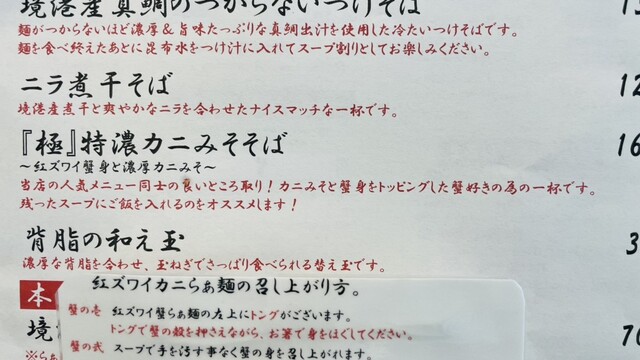 境港産真鯛のつからないつけそば
麺がつからないほど濃厚&旨味たっぷりな真鯛出汁を使用した冷たいつけそばです。
麺を食べ終えたあとに昆布水をつけ汁に入れてスープ割りとしてお楽しみください。
ニラ煮干そば 12
境港産煮干と爽やかなニラを合わせたナイスマッチな一杯です。
『極』特濃カニみそそば 16
〜紅ズワイ蟹身と濃厚カニみそ〜
当店の人気メニュー同士の良いところ取り!カニみそと蟹身をトッピングした蟹好きの為の一杯です。
残ったスープにご飯を入れるのをオススメします!
背脂の和え玉 3
濃厚な背脂を合わせ、玉ねぎでさっぱり食べられる替え玉です。
本
紅ズワイカニらぁ麺の召し上がり方。
蟹の壱 紅ズワイ蟹らぁ麺の左上にトングがございます。
トングで蟹の殻を押さえながら、お箸で身をほぐしてください。
蟹の弐 スープで手を汚す事なく蟹の身を召し上がれます。
境
※らぁ